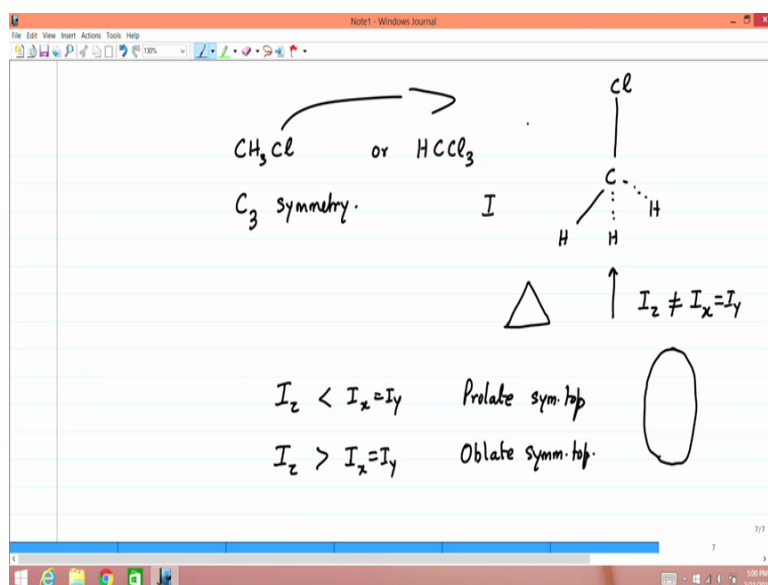 Note1 - Windows Journal
File Edit View Insert Actions Tools Help
130%
Cl
CH₃Cl or HCCl₃
C
C₃ symmetry. I
H
H H
I_z ≠ I_x = I_y
I_z < I_x = I_y Prolate sym. top
I_z > I_x = I_y Oblate symm. top.
7/7
7
5:00 PM